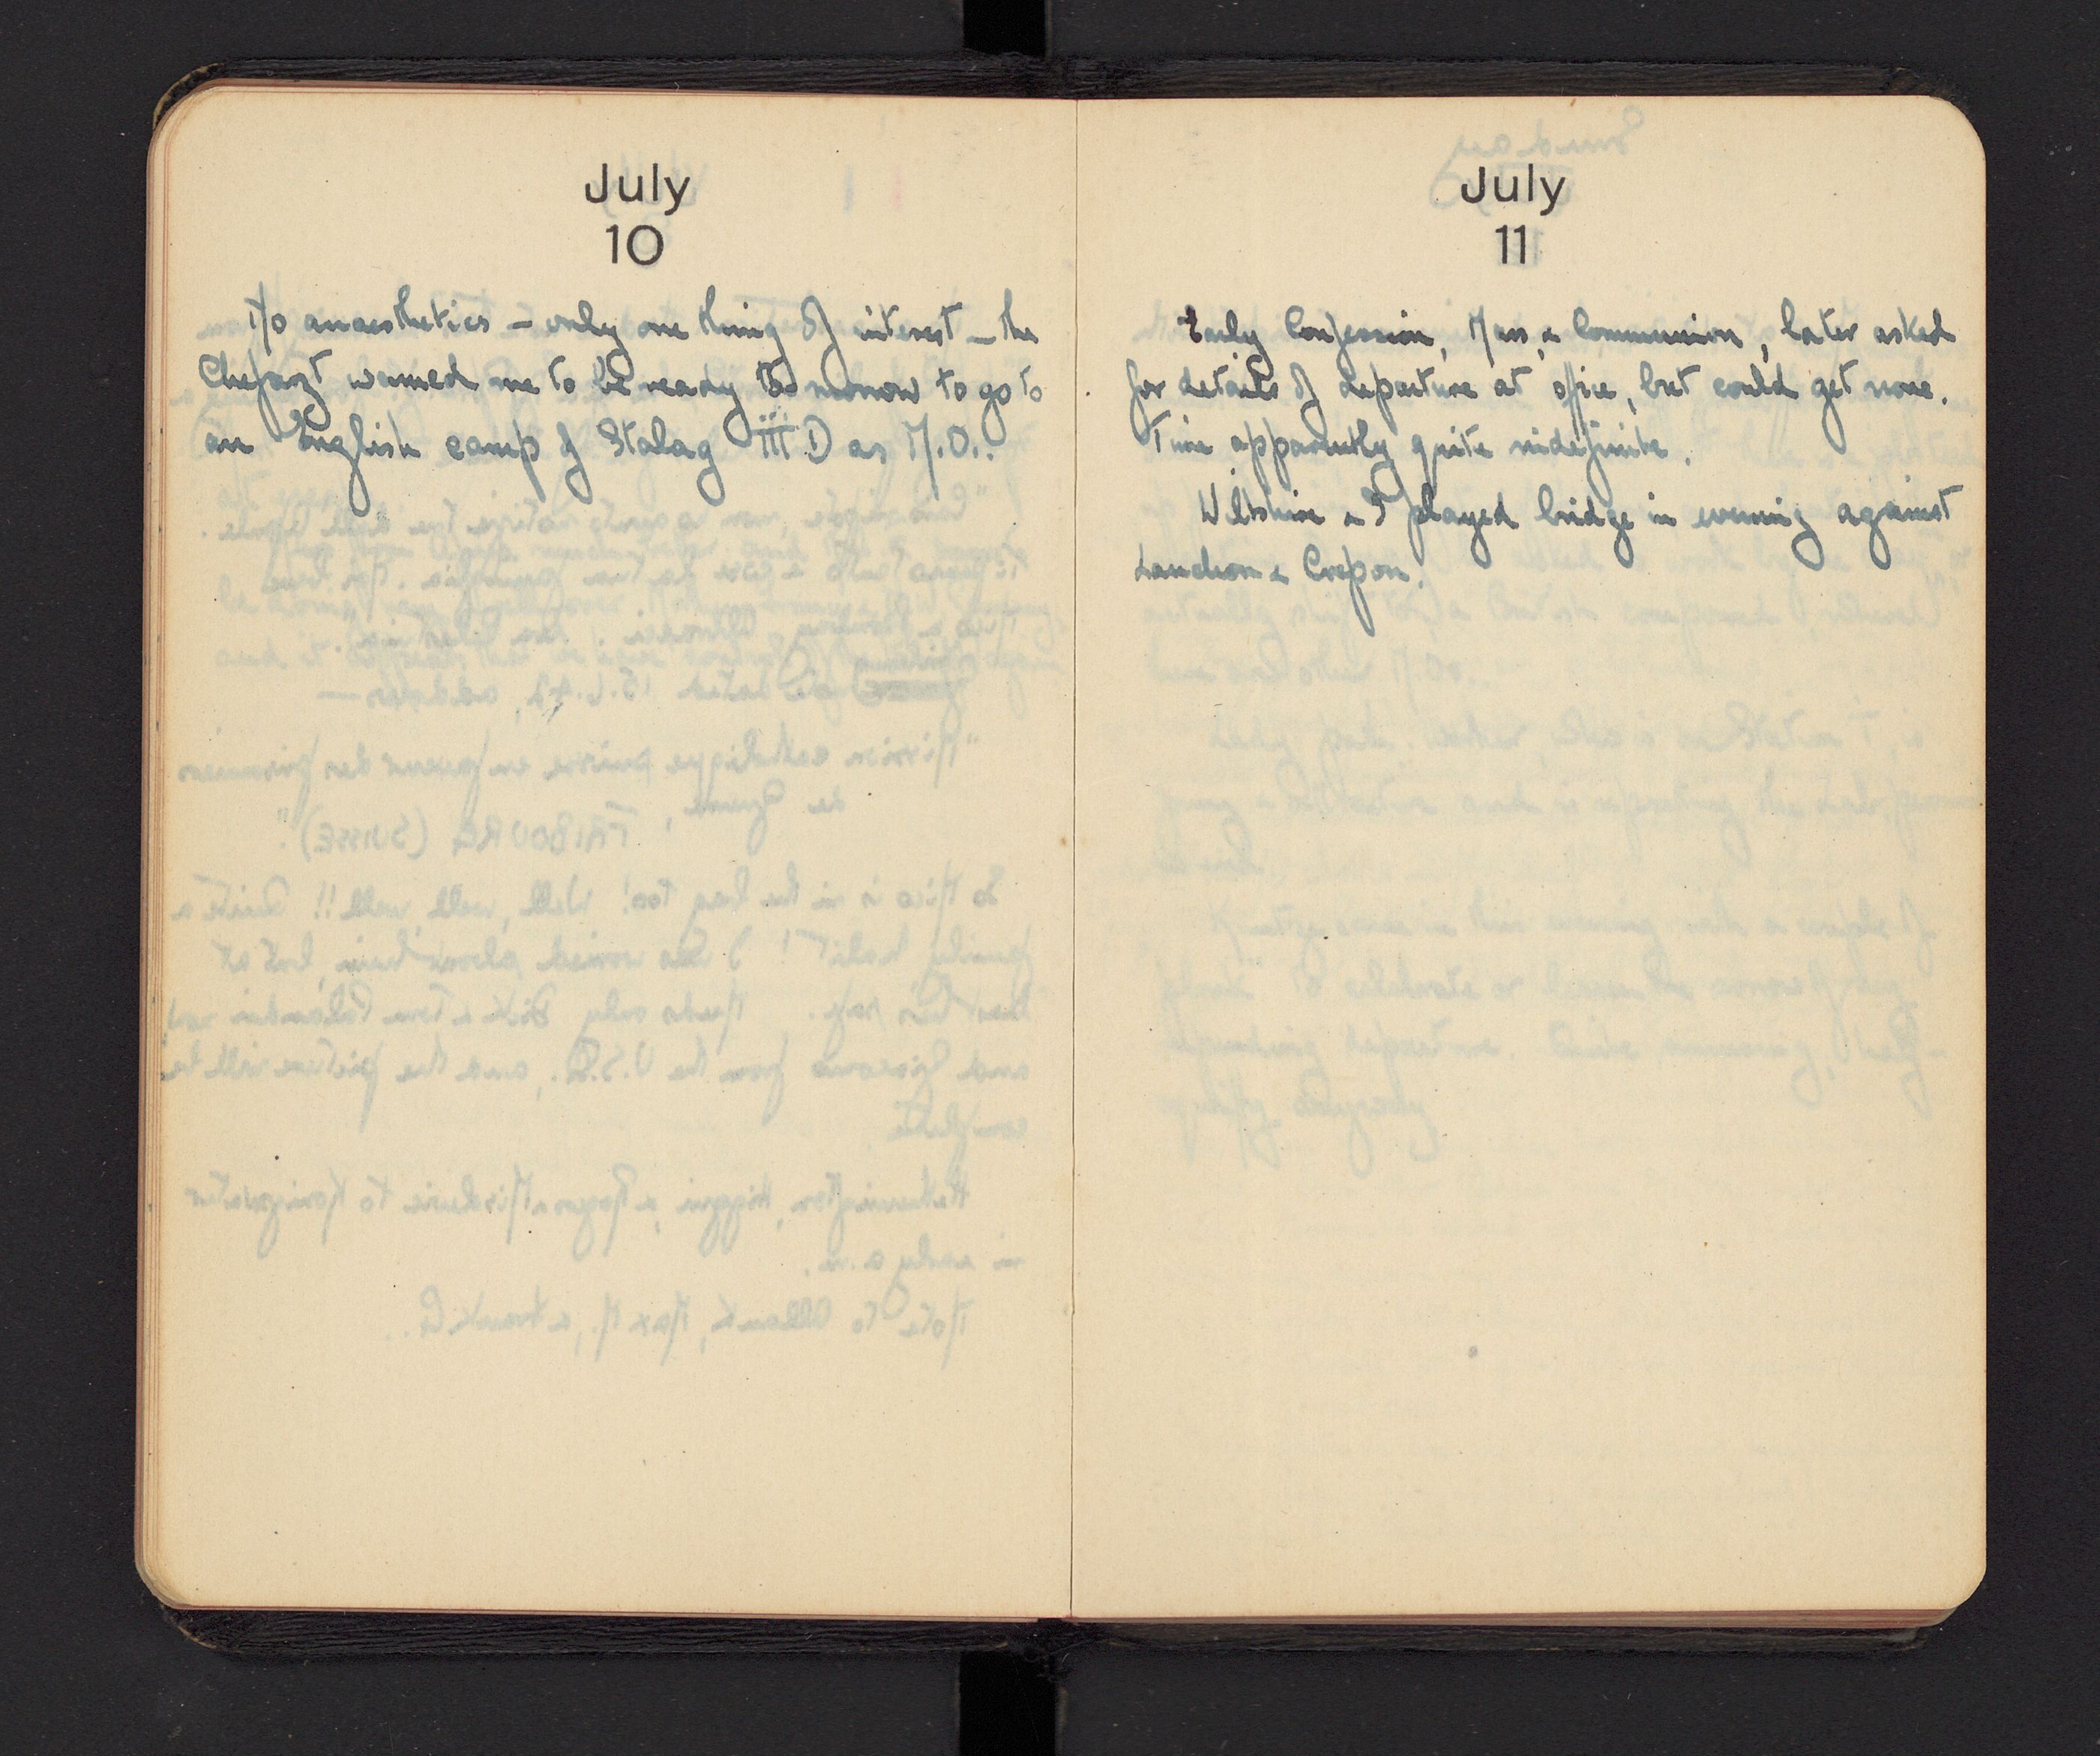 July
10
No anaesthetics – only one thing of interest – the
Chefarzt warned me to be ready to morrow to go to
an English camp of Stalag III D as M.O..
July
11
Early Confession, Mass, & Communion, later asked
for details of departure at office, but could get none.
Time apparently quite indefinite.
Wiltshire & I played bridge in evening against
& Crepon.